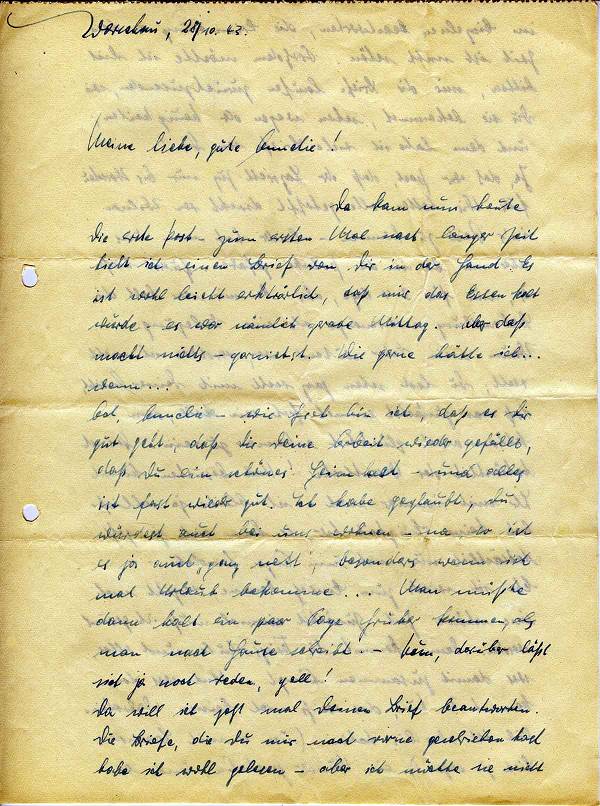 Warschau, 28/10.43.
Meine liebe, gute Annelie!
Da kam nun heute
die erste Post – zum ersten Mal nach langer Zeit
hielt ich einen Brief von Dir in der Hand. Es
ist wohl leicht erklärlich, daß mir das Essen kalt
wurde – es war nämlich gerade Mittag. Aber daß
macht nichts – garnichts. Wie gerne hätte ich...
wenn...
Annelie – wie froh bin ich, daß es Dir
gut geht, daß Dir Deine Arbeit wieder gefällt,
daß Du ein schönes Heim hast – und alles
ist fast wieder gut. Ich habe geglaubt, Du
würdest auch bei uns wohnen – na so ist
es ja auch „ganz nett", besonders wenn ich
mal Urlaub bekomme... Man müßte
dann halt ein paar Tage früher kommen, als
man nach Hause schreibt. – Nun, darüber läßt
sich ja noch reden, gell!
Da will ich jetzt mal Deinen Brief beantworten.
Die Briefe, die Du mir nach vorne geschrieben hast
habe ich wohl gelesen – aber ich möchte sie nicht